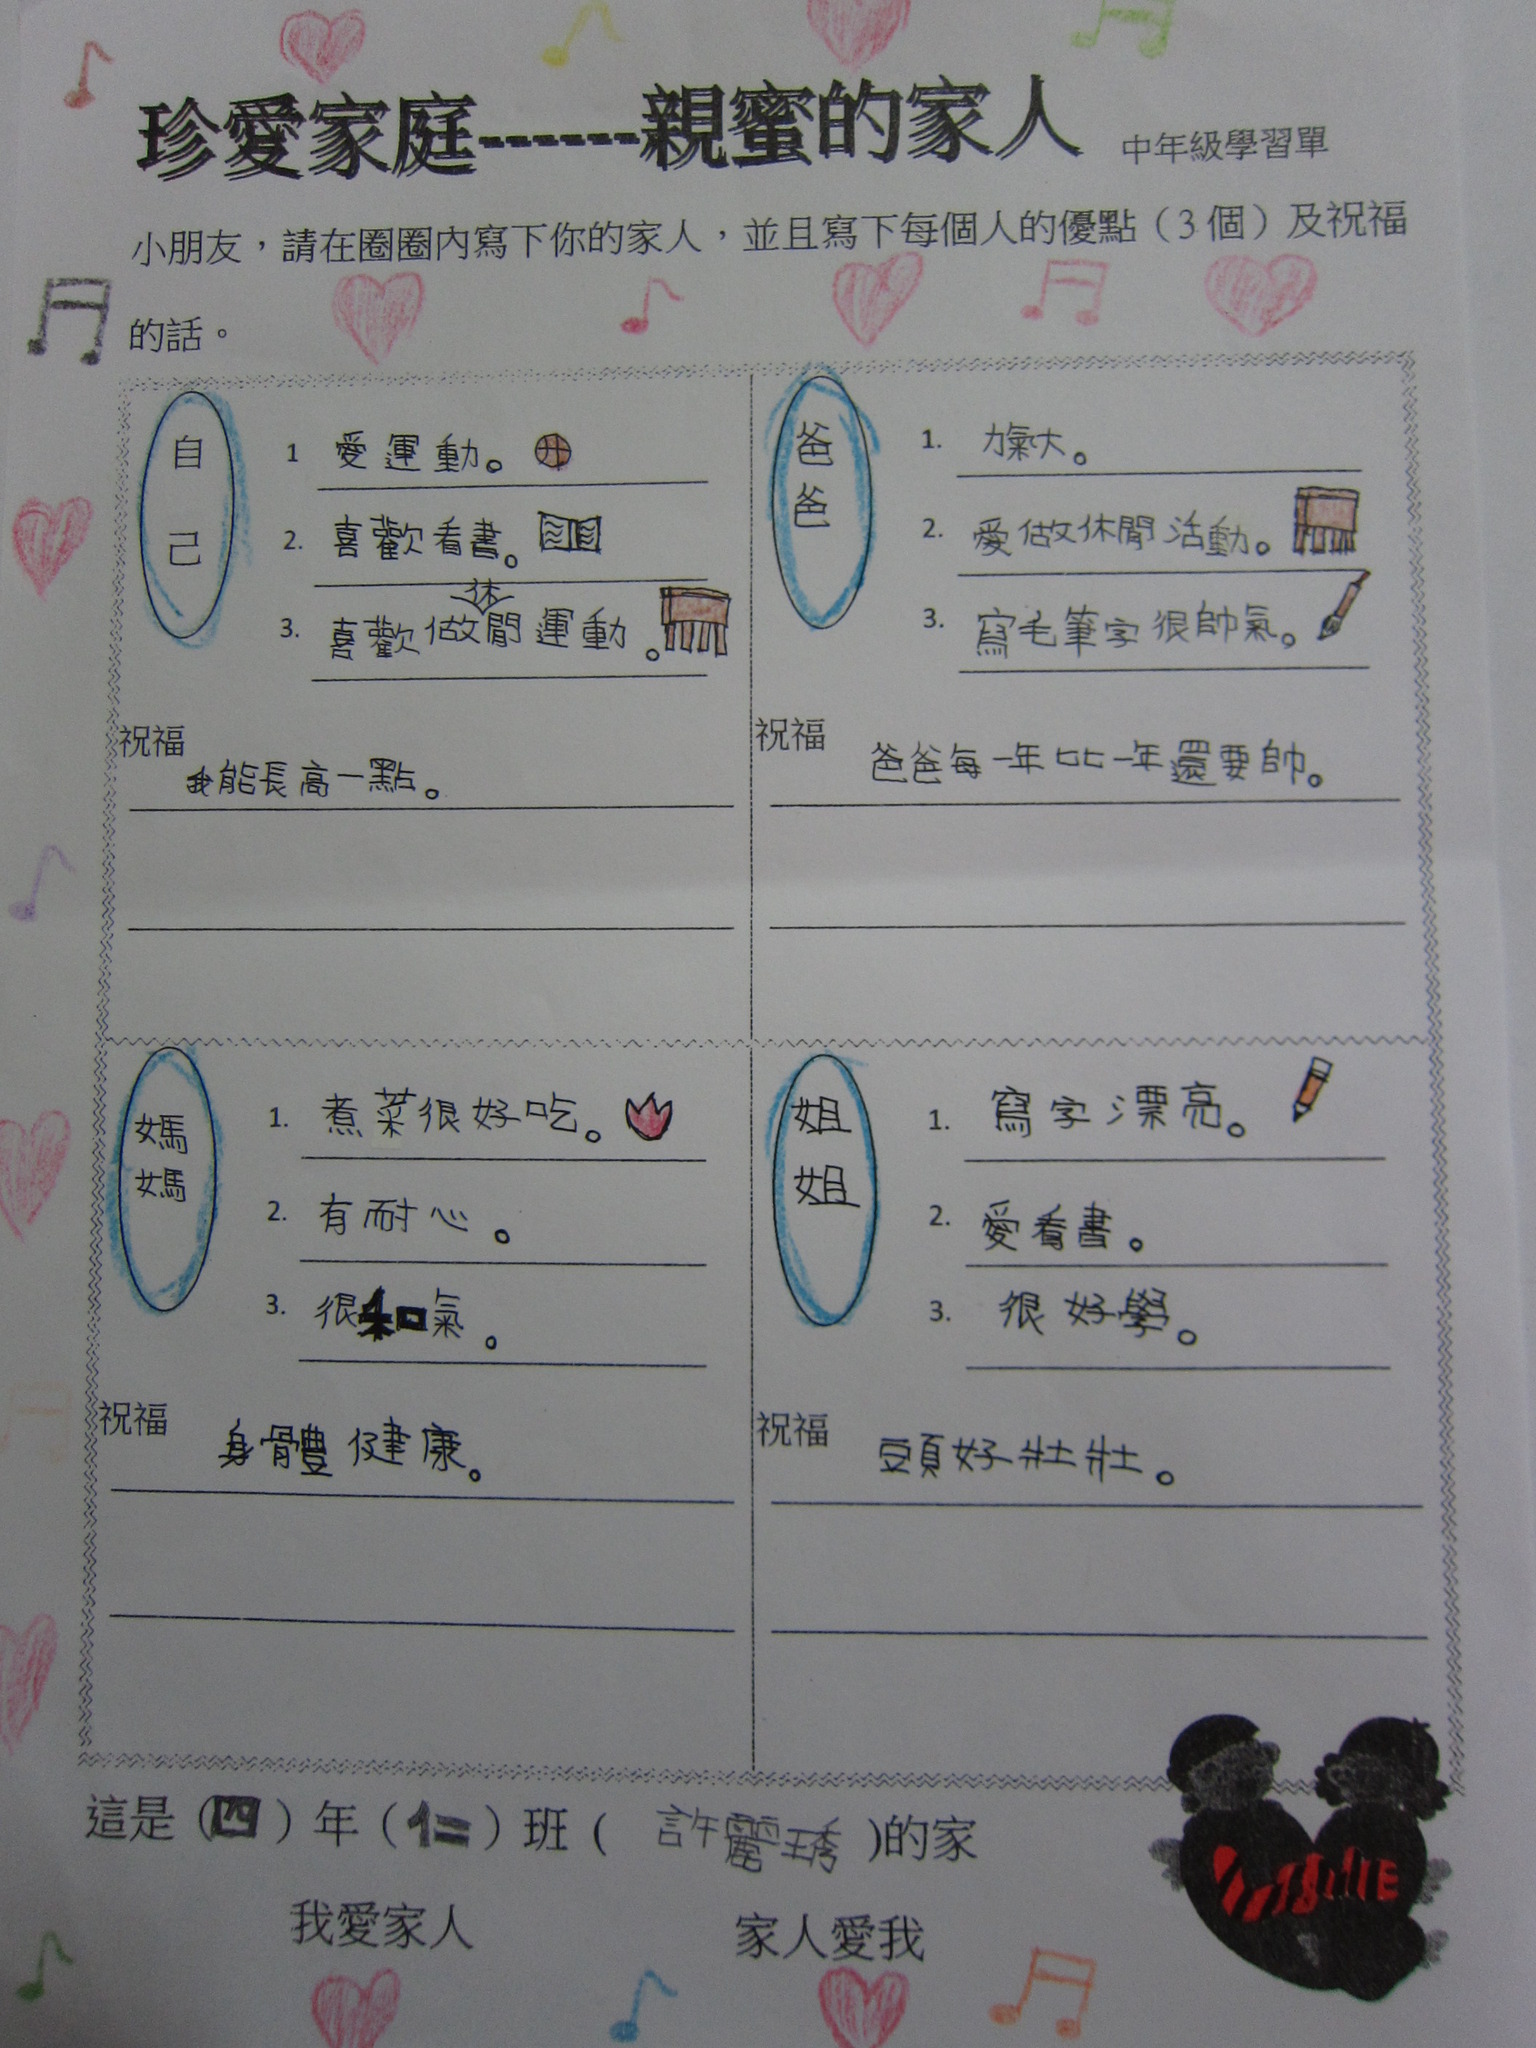 珍愛家庭------親蜜的家人 中年級學習單
小朋友，請在圈圈內寫下你的家人，並且寫下每個人的優點（3個）及祝福
的話。
自己
1 愛運動。
2. 喜歡看書。
3. 喜歡做休閒運動。
祝福
我能長高一點。
爸爸
1. 力氣大。
2. 愛做休閒活動。
3. 寫毛筆字很帥氣。
祝福
爸爸每一年比一年還要帥。
媽媽
1. 煮菜很好吃。
2. 有耐心。
3. 很和氣。
祝福
身體健康。
姐姐
1. 寫字漂亮。
2. 愛看書。
3. 很好學。
祝福
頭好壯壯。
這是（四）年（仁）班（許麗琇)的家
我愛家人 家人愛我